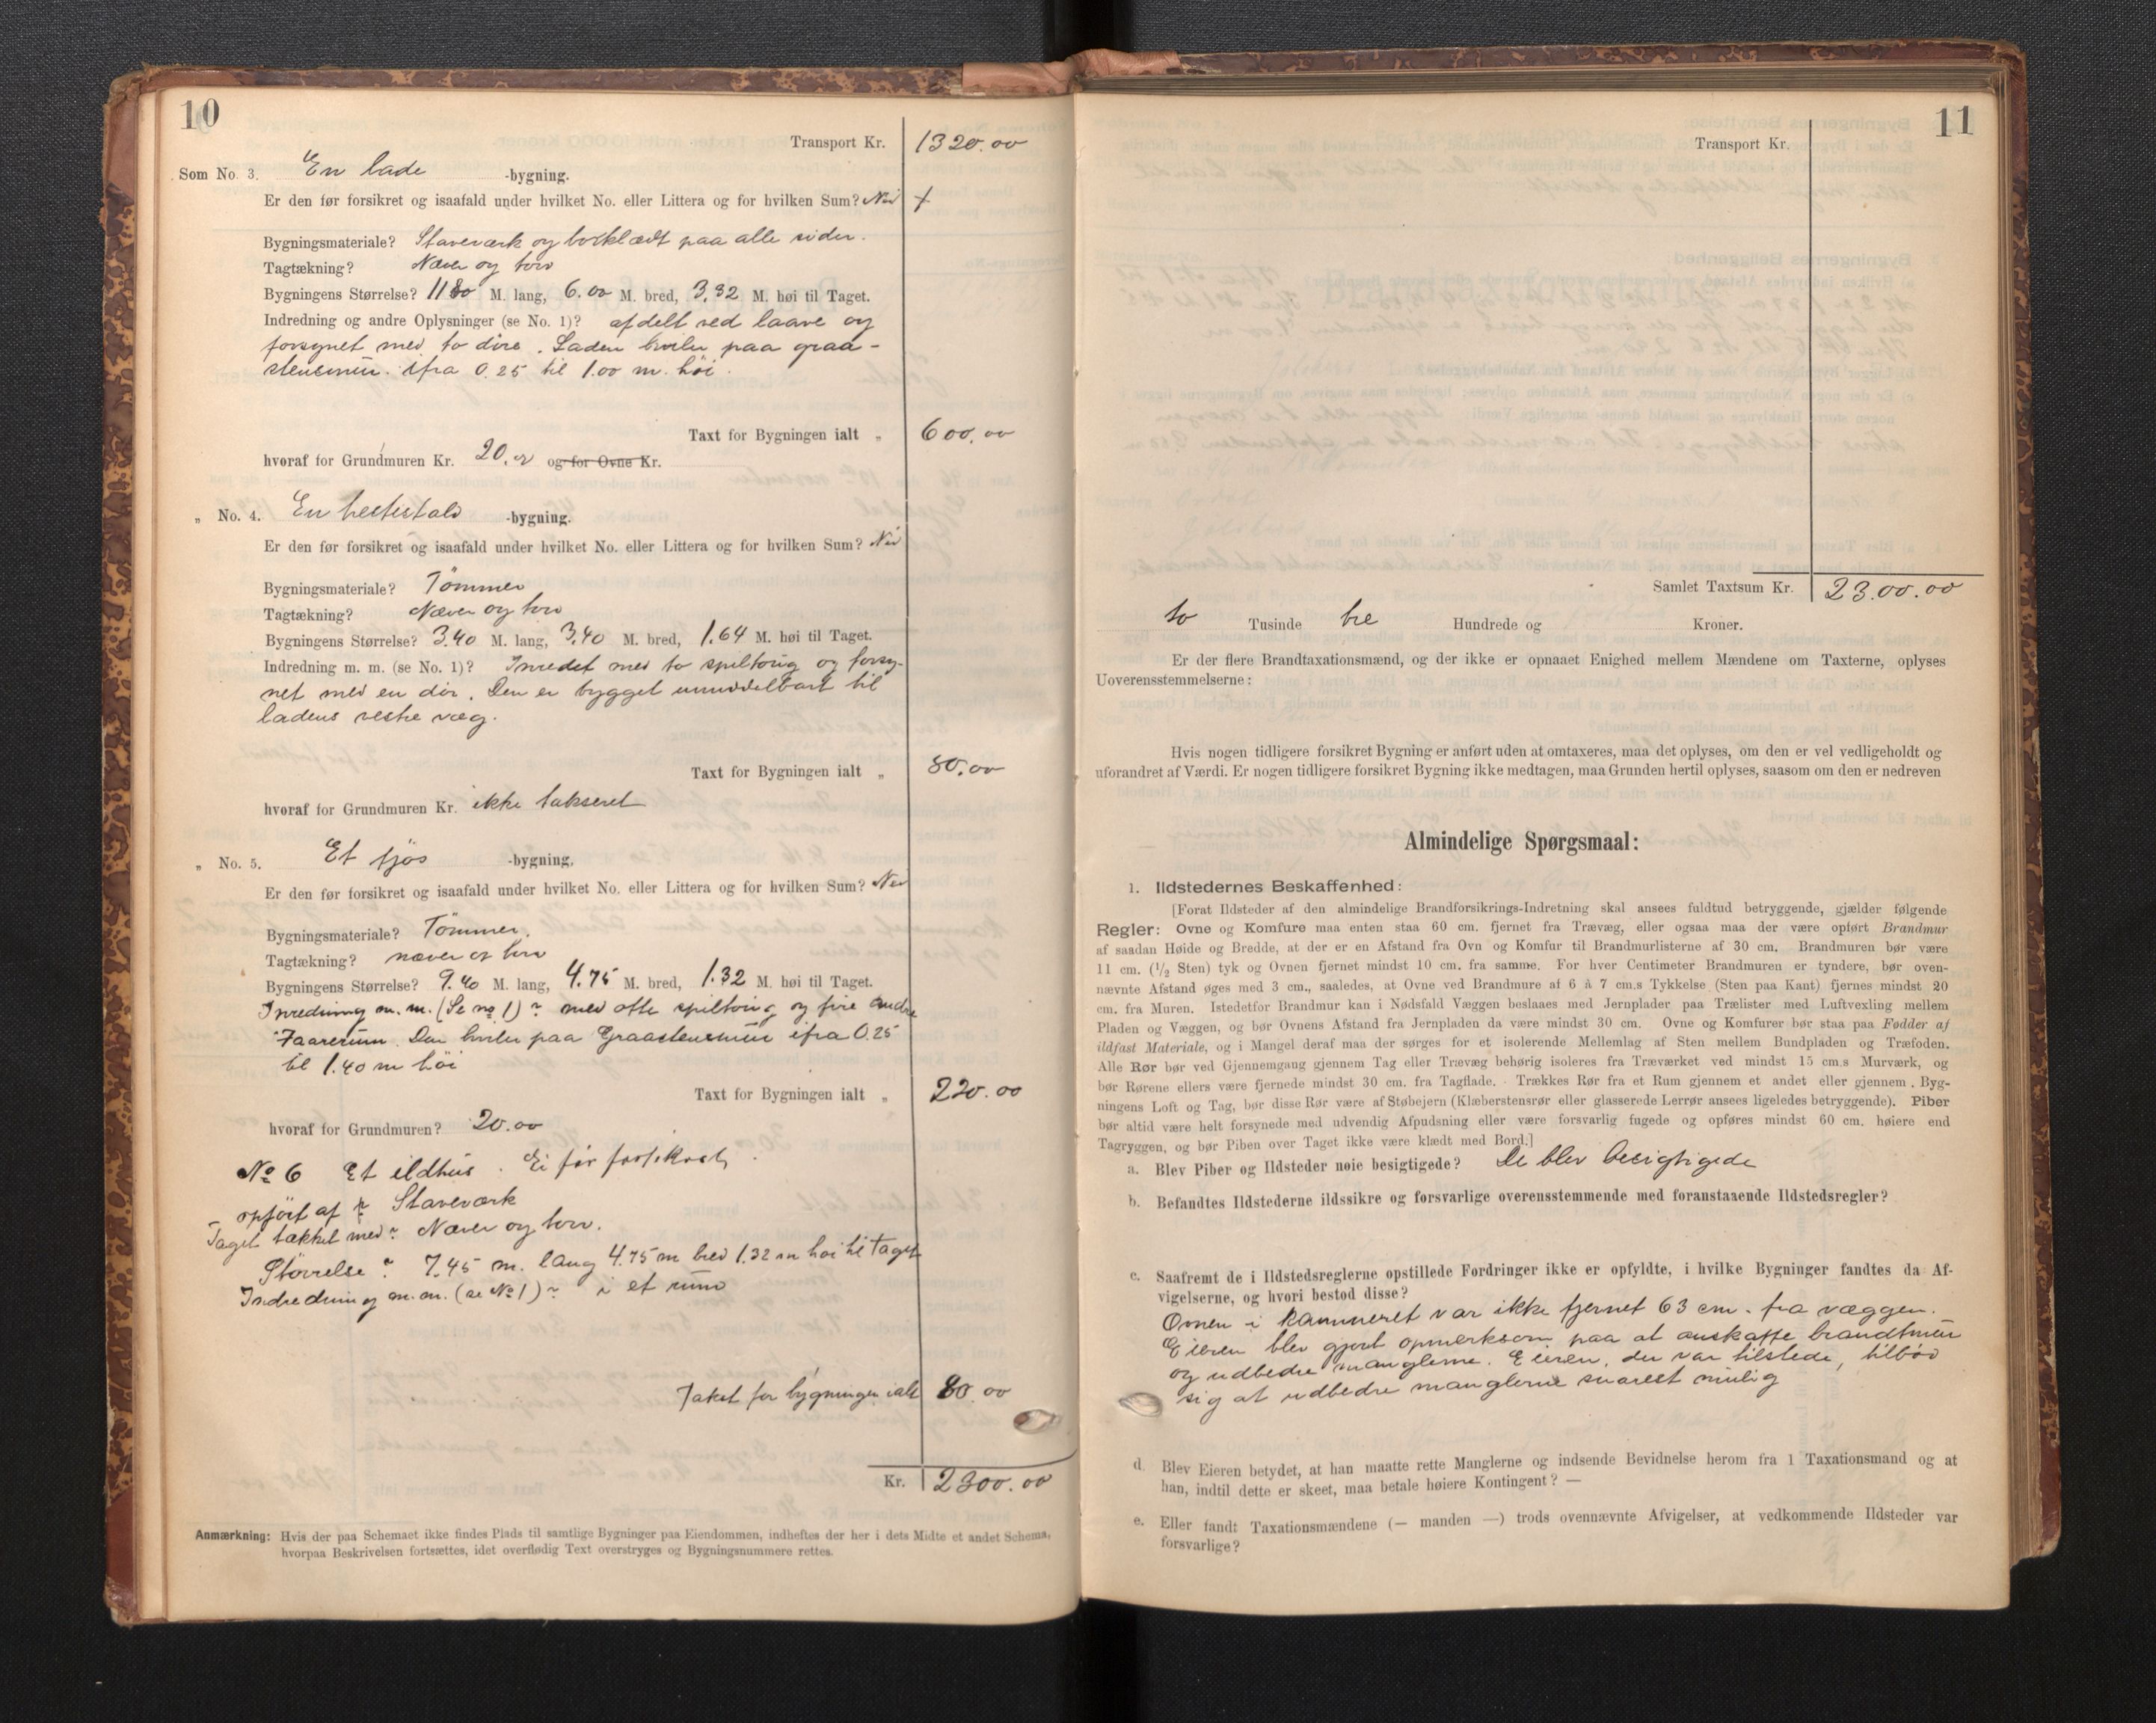 10
Transport Kr. 1320.00
Som No. 3. En lade -bygning.
Er den før forsikret og isaafald under hvilket No. eller Littera og for hvilken Sum? Nei
Bygningsmateriale? Staveværk og bordklædt paa alle sider.
Tagtækning? Næver og torv
Bygningens Størrelse? 11 80 M. lang, 6.00 M. bred, 3,32 M. høi til Taget.
Indredning og andre Oplysninger (se No. 1)? afdelt ved laave og
forsynet med to döre. Laden hviler paa graa-
stensmur. ifra 0.25 til 1.00 m. höi.
Taxt for Bygningen ialt „ 600,00
hvoraf for Grundmuren Kr. 20, og for Ovne Kr.
„ No. 4. En hestestald -bygning.
Er den før forsikret og isaafald under hvilket No. eller Littera og for hvilken Sum? Nei
Bygningsmateriale? Tömmer
Tagtækning? Næver og torv
Bygningens Størrelse? 3,40 M. lang, 3,40 M. bred, 1.64 M. høi til Taget.
Indredning m. m. (se No. 1)? Inredet med to spiltoug og forsy-
net med en dör. Den er bygget umiddelbart til
ladens vestre væg.
Taxt for Bygningen ialt „ 80,00
hvoraf for Grundmuren Kr. ikke takseret
„ No. 5. Et fjös -bygning.
Er den før forsikret og isaafald under hvilket No. eller Littera og for hvilken Sum? Nei
Bygningsmateriale? Tömmer.
Tagtækning? næver og torv
Bygningens Størrelse? 9.40 M. lang, 4.75 M. bred, 1.32 M. høi til Taget.
Inredning m. m. (Se no 1)? med otte spiltoug og fire andre
Faarerum. Den hviler paa Graastensmur ifra 0.25
til 1.40 m höi
Taxt for Bygningen ialt „ 220.00
hvoraf for Grundmuren? 20.00
No 6 Et ildhus. Ei før forsikret.
opfört af? Staveværk
Taget tækket med? Næver og torv.
Störrelse? 7.45 m. lang 4.75 m bred 1.32 m höi til taget
Indredning m.m. (se No 1)? i et rum
Takst for bygningen ialt 80.00
Kr. 2300.00
Anmærkning: Hvis der paa Schemaet ikke findes Plads til samtlige Bygninger paa Eiendommen, indheftes der her i dets Midte et andet Schema,
hvorpaa Beskrivelsen fortsættes, idet overflødig Text overstryges og Bygningsnummere rettes.
11
Transport Kr.
Samlet Taxtsum Kr. 23.00.00
to Tusinde tre Hundrede og Kroner.
Er der flere Brandtaxationsmænd, og der ikke er opnaaet Enighed mellem Mændene om Taxterne, oplyses
Uoverensstemmelserne:
Hvis nogen tidligere forsikret Bygning er anført uden at omtaxeres, maa det oplyses, om den er vel vedligeholdt og
uforandret af Værdi. Er nogen tidligere forsikret Bygning ikke medtagen, maa Grunden hertil oplyses, saasom om den er nedreven
Almindelige Spørgsmaal:
1. Ildstedernes Beskaffenhed:
[Forat Ildsteder af den almindelige Brandforsikrings-Indretning skal ansees fuldtud betryggende, gjælder følgende
Regler: Ovne og Komfure maa enten staa 60 cm. fjernet fra Trævæg, eller ogsaa maa der være opført Brandmur
af saadan Høide og Bredde, at der er en Afstand fra Ovn og Komfur til Brandmurlisterne af 30 cm. Brandmuren bør være
11 cm. (1/2 Sten) tyk og Ovnen fjernet mindst 10 cm. fra samme. For hver Centimeter Brandmuren er tyndere, bør oven-
nævnte Afstand øges med 3 cm., saaledes, at Ovne ved Brandmure af 6 à 7 cm.s Tykkelse (Sten paa Kant) fjernes mindst 20
cm. fra Muren. Istedetfor Brandmur kan i Nødsfald Væggen beslaaes med Jernplader paa Trælister med Luftvexling mellem
Pladen og Væggen, og bør Ovnens Afstand fra Jernpladen da være mindst 30 cm. Ovne og Komfurer bør staa paa Fødder af
ildfast Materiale, og i Mangel deraf maa der sørges for et isolerende Mellemlag af Sten mellem Bundpladen og Træfoden.
Alle Rør bør ved Gjennemgang gjennem Tag eller Trævæg behørig isoleres fra Træværket ved mindst 15 cm.s Murværk, og
bør Rørene ellers være fjernede mindst 30 cm. fra Tagflade. Trækkes Rør fra et Rum gjennem et andet eller gjennem Byg-
ningens Loft og Tag, bør disse Rør være af Støbejern (Klæberstensrør eller glasserede Lerrør ansees ligeledes betryggende). Piber
bør altid være helt forsynede med udvendig Afpudsning eller være forsvarlig fugede og opføres mindst 60 cm. høiere end
Tagryggen, og bør Piben over Taget ikke være klædt med Bord.]
a. Blev Piber og Ildsteder nøie besigtigede? De blev besigtigede
b. Befandtes Ildstederne ildssikre og forsvarlige overensstemmende med foranstaaende Ildstedsregler?
c. Saafremt de i Ildstedsreglerne opstillede Fordringer ikke er opfyldte, i hvilke Bygninger fandtes da Af-
vigelserne, og hvori bestod disse?
Ovnen i kammeret var ikke fjernet 63 cm. fra væggen.
Eieren blev gjort opmerksom paa at anskaffe brandtmur
og udbedre manglerne. Eieren, der var tilstede, tilbød
sig at udbedre manglerne snarest mulig
d. Blev Eieren betydet, at han maatte rette Manglerne og indsende Bevidnelse herom fra 1 Taxationsmand og at
han, indtil dette er skeet, maa betale høiere Kontingent? —
e. Eller fandt Taxationsmændene (— manden —) trods ovennævnte Afvigelser, at vedkommende Ildsteder var
forsvarlige?